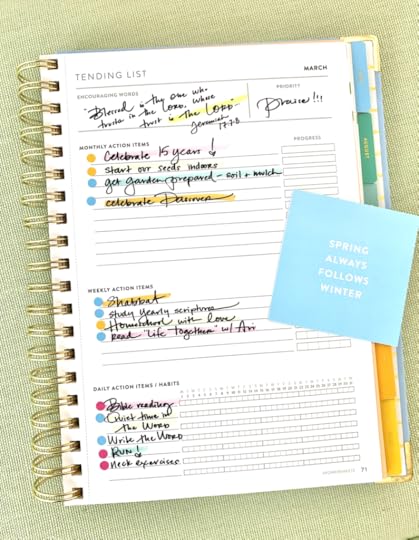 TENDING LIST
MARCH
ENCOURAGING WORDS
"Blessed is the one who
trusts in the LORD, whose
trust is the LORD"
Jeremiah
17:7-8
PRIORITY
Praise!!!
MONTHLY ACTION ITEMS
PROGRESS
Celebrate 15 years!
start our seeds indoors
get garden prepared - soil + mulch
celebrate
SPRING
ALWAYS
FOLLOWS
WINTER
AUGUST
WEEKLY ACTION ITEMS
Shabbat
study yearly scriptures
Homeschool with love
Read "Life Together" w/ Ari
DAILY ACTION ITEMS / HABITS
Bible reading
Quiet time in
the WORD
Write the WORD
RUN!
neck exercises
71